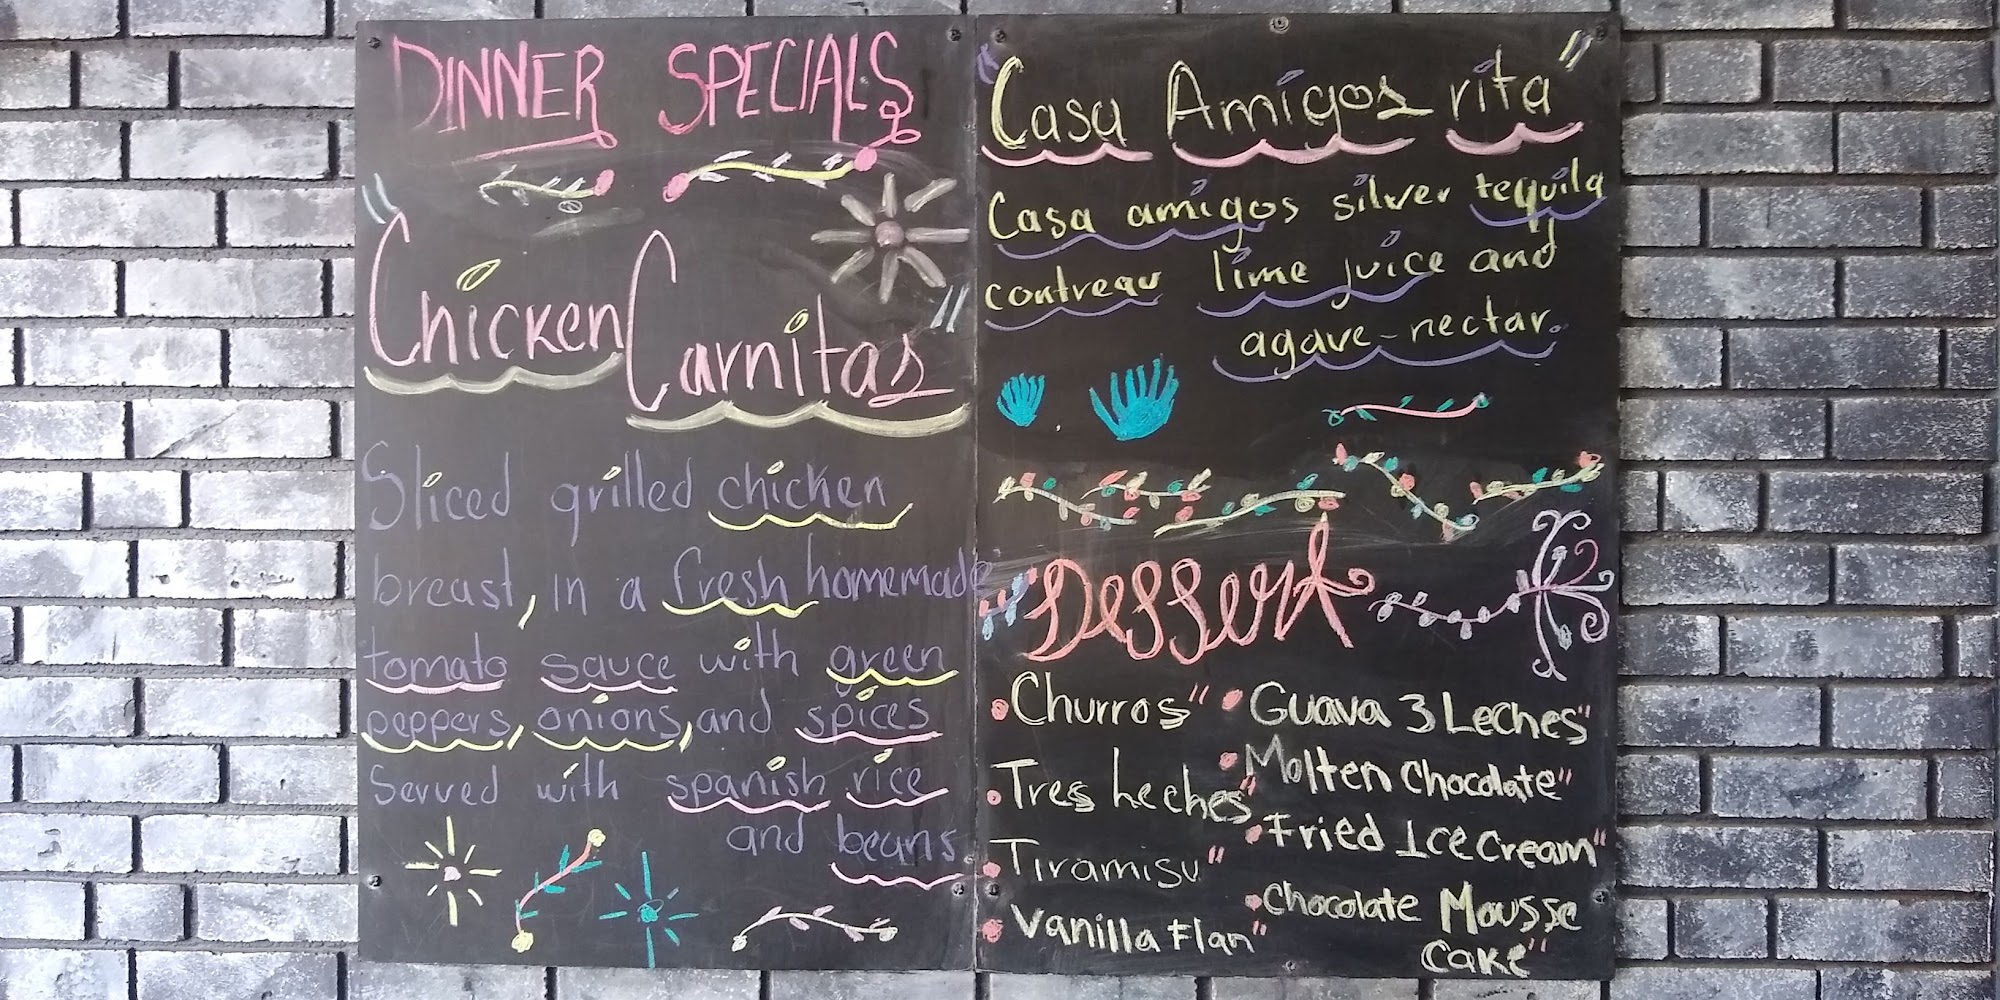 DINNER SPECIALS
"Chicken Carnitas"
Sliced grilled chicken
breast, in a fresh homemade
tomato sauce with green
peppers, onions, and spices
Served with spanish rice
and beans
"Casa Amigos rita"
Casa amigos silver tequila
contreau lime juice and
agave-nectar.
"Dessert
Churros"
Tres Leches"
Tiramisu"
Vanilla Flan"
Guava 3 Leches"
Molten Chocolate"
Fried Ice cream"
Chocolate Mousse
Cake"